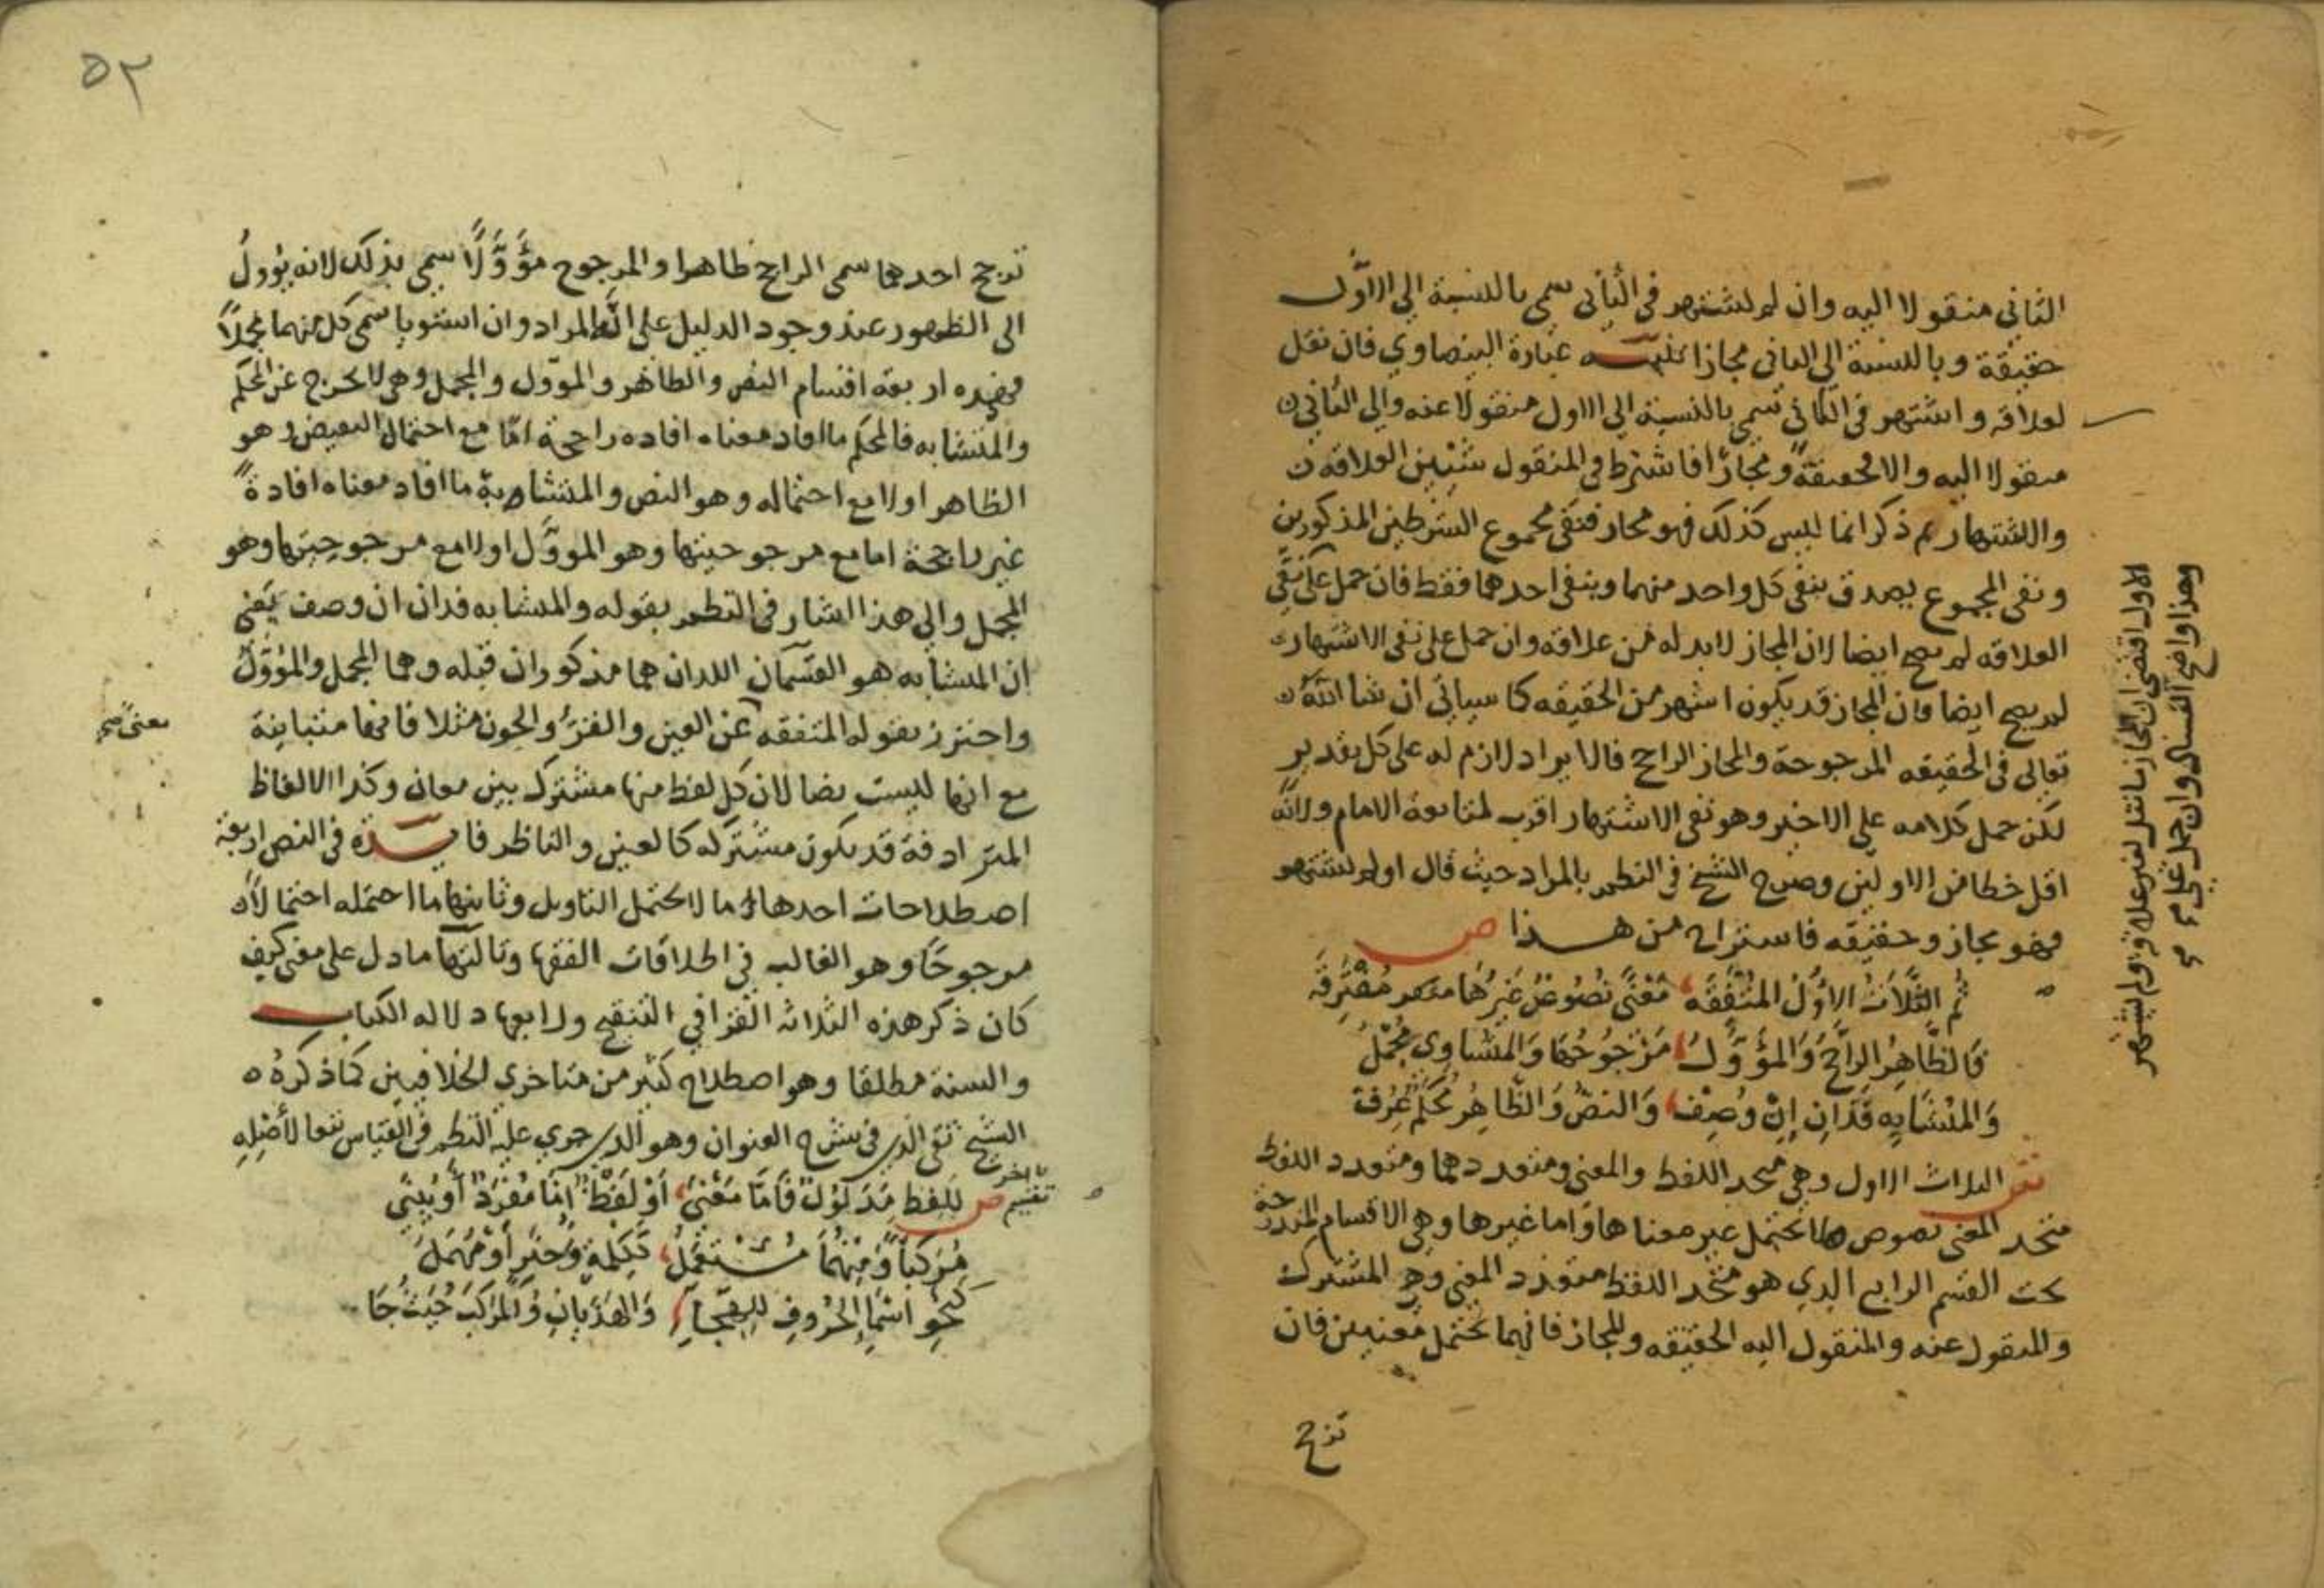 الثاني منقولا اليه وان لم يشتهر في الثاني سمي بالنسبة الى الأول
حقيقة وبالنسبة الى الثاني مجازا تنبيه عبارة البيضاوي فان نقل
لعلاقه واشتهر في الثاني سمي بالنسبة الى الاول منقولا عنه والى الثاني
منقولا اليه والا فحقيقة ومجازا فاشترط في المنقول شيئين العلاقه
والاشتهار ثم ذكر انما ليس كذلك فهو مجاز فنفى مجموع الشرطين المذكورين
ونفى المجموع يصدق بنفي كل واحد منهما وبنفي احدهما فقط فان حمل على نفي
العلاقه لم يصح ايضا لان المجاز لابد له من علاقه وان حمل على نفي الاشتهار
لم يصح ايضا فان المجاز قد يكون اشهر من الحقيقه كما سياتي ان شا الله
تعالى في الحقيقه المرجوحة والمجاز الراجح فالايراد لازم له على كل تقدير
لكن حمل كلامه على الاخير وهو نفي الاشتهار اقرب لمتابعة الامام ولانه
اقل خطا من الاولين وصرح الشيخ في النظم بالمراد حيث قال او لم يشتهر
فهو مجاز وحقيقه فاستراح من هذا ص
ثُم الثَّلَاثُ الاُوَّلُ المُتَّفِقَه مَعْنًى نُصُوصٌ غَيْرُهَا مُفْتَرِقَه
فَالظَّاهِرُ الرَّاجِحُ وَالمُؤَوَّلُ مَرْجُوحُهَا وَالمُسَاوِي مُجْمَلُ
وَالمُتَشَابِه فَذَانِ إِنْ وُصِف وَالنصُّ وَالظَّاهِرُ مُحْكَم عُرِف
ش الثلاث الاول وهي متحد اللفظ والمعنى ومتعددهما ومتعدد اللفظ
متحد المعنى نصوص لا تحتمل غير معناها واما غيرها وهي الاقسام المندرجة
تحت القسم الرابع الذي هو متحد اللفظ متعدد المعنى وهو المشترك
والمنقول عنه والمنقول اليه الحقيقه والمجاز فانهما تحتمل معنيين فان
ترجح
الاول اقتضى ان المجاز ما نقل لغير علاقة ولم يشتهر
وهذا واضح الفساد وان حمل على
٥٢
ترجح احدهما سمى الراجح ظاهرا والمرجوح مؤَوَّلًا سمي بذلك لانه يؤولُ
الى الظهور عند وجود الدليل على انه المراد وان استويا سمى كل منهما مجملًا
فهذه اربعة اقسام النص والظاهر والموول والمجمل وهي لا تخرج عن المحكم
والمتشابه فالمحكم ما افاد معناه افاده راجحة اما مع احتمال النقيض وهو
الظاهر اولا مع احتماله وهو النص والمتشابه ما افاد معناه افادةً
غير راجحة اما مع مرجوحيتها وهو الموَوَّل اولا مع مرجوحيتها وهو
المجمل والى هذا اشار في النظم بقوله والمتشابه فذان ان وصف يعني
ان المتشابه هو القسمان اللذان هما مذكوران قبله وهما المجمل والمُؤوَّلُ
واحترز بقوله المتفقه عن العين والقرء والجون مثلا فانها متباينة
معنى صح
مع انها ليست نصا لان كل لفظ منها مشترك بين معان وكذا الالفاظ
المترادفة قد يكون مشتركه كالعين والناظر فايدة في النص اربعة
اصطلاحات احدها ما لا يحتمل التاويل وثانيها ما احتمله احتمالا
مرجوحًا وهو الغالب في اطلاقات الفقها وثالثها ما دل على معنى كيف
كان ذكر هذه الثلاثه القرافي في التنقيح ورابعها دلاله الكتاب
والسنة مطلقا وهو اصطلاح كثير من متاخري الخلافيين كما ذكره
الشيخ تقي الدين في شرح العنوان وهو الذي جرى عليه النظم في القياس تبعا لأصْلِهِ
تقسيم اخر
ص لِلفظِ مَدْلُولٌ فَامَّا مَعْنَى أَوْ لَفْظٌ امَّا مُفْرَدٌ أَو يُبنَى
مُرَكباً وَمِنْهُمَا مُسْتَعْمَلُ كَكِلْمَةٍ وَخَبَرٍ أَوْ مُهْمَلُ
كَنَحْوِ اسْمَاءِ الحُرُوفِ لِلهِجَاءِ وَالهَذَيانِ وَالمرَكبَ حَيْثُ جَا